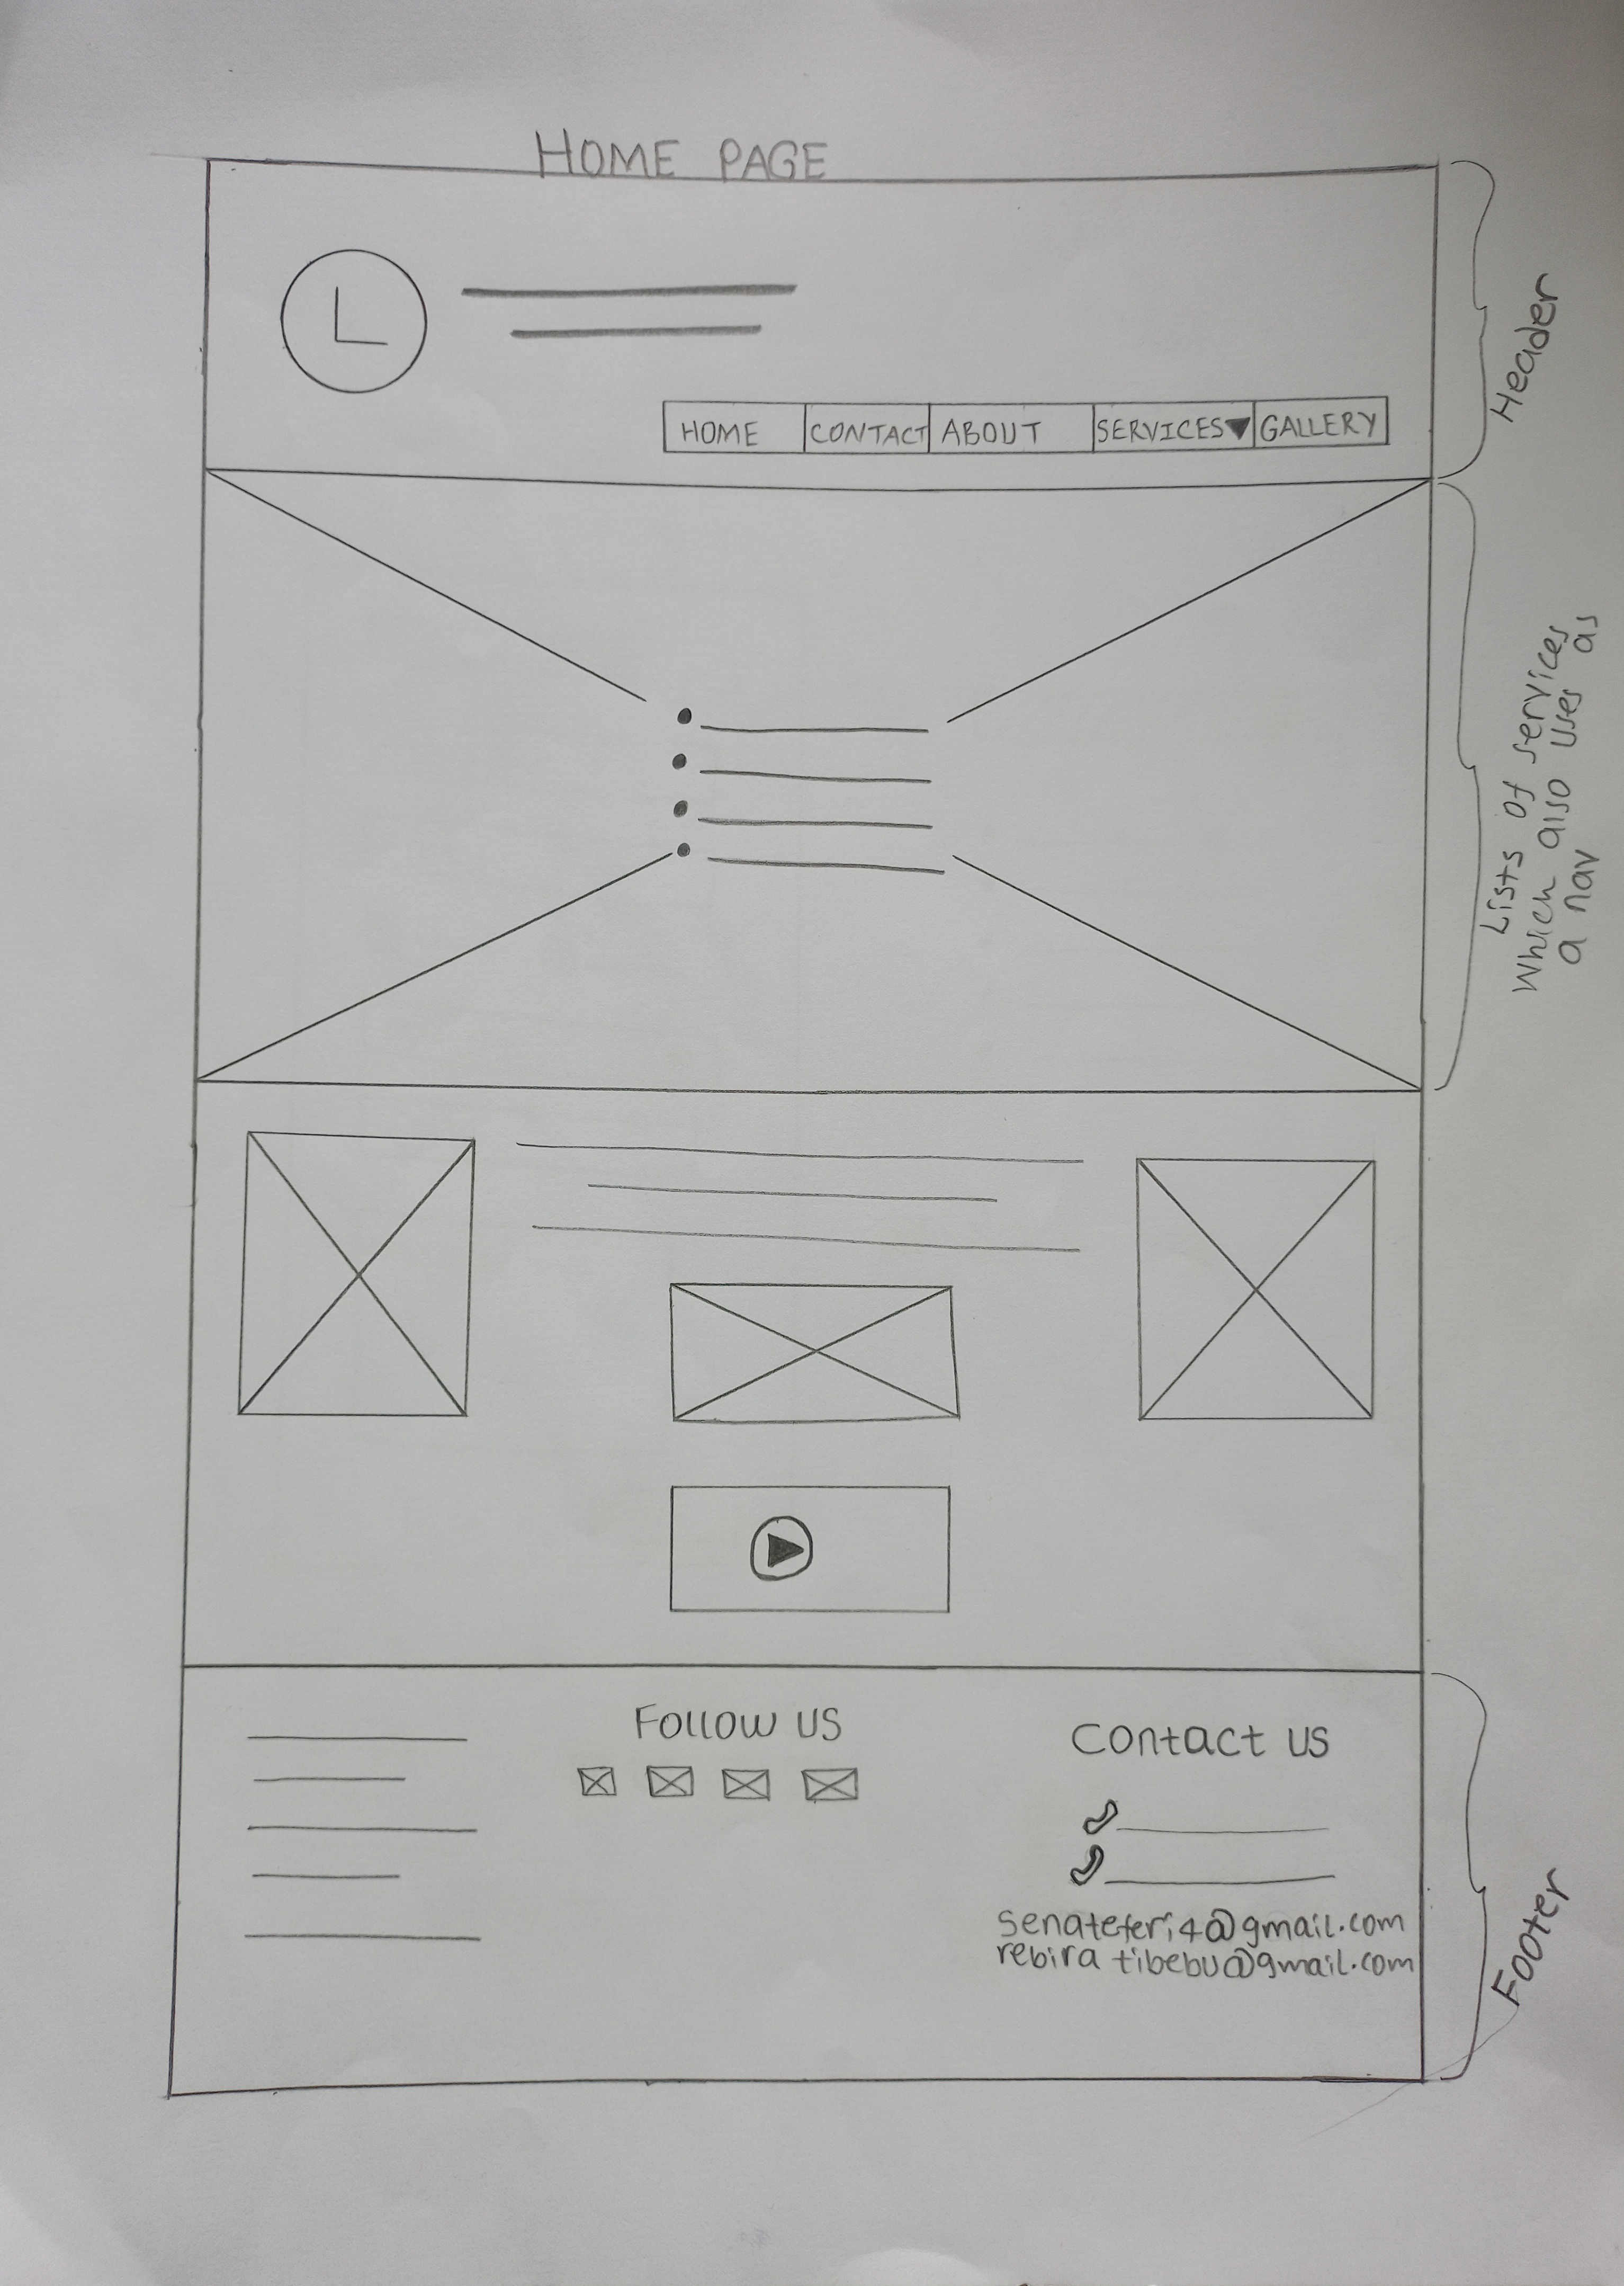 HOME PAGE
L
HOME
CONTACT
ABOUT
SERVICES▼
GALLERY
Header
Lists of services
which also uses as
a nav
Follow us
Contact us
senateferi4@gmail.com
rebira tibebu@gmail.com
Footer